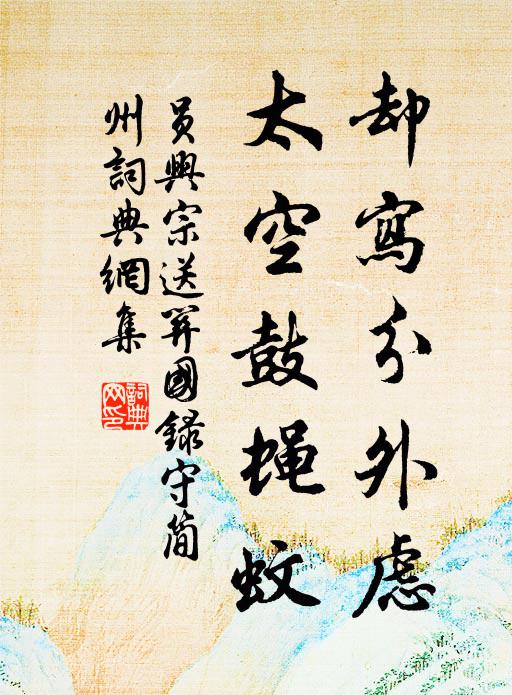 却寫分外慮
太空鼓蝇蚊
員興宗送羿國錄守简
州詞典網集
詞典
网印